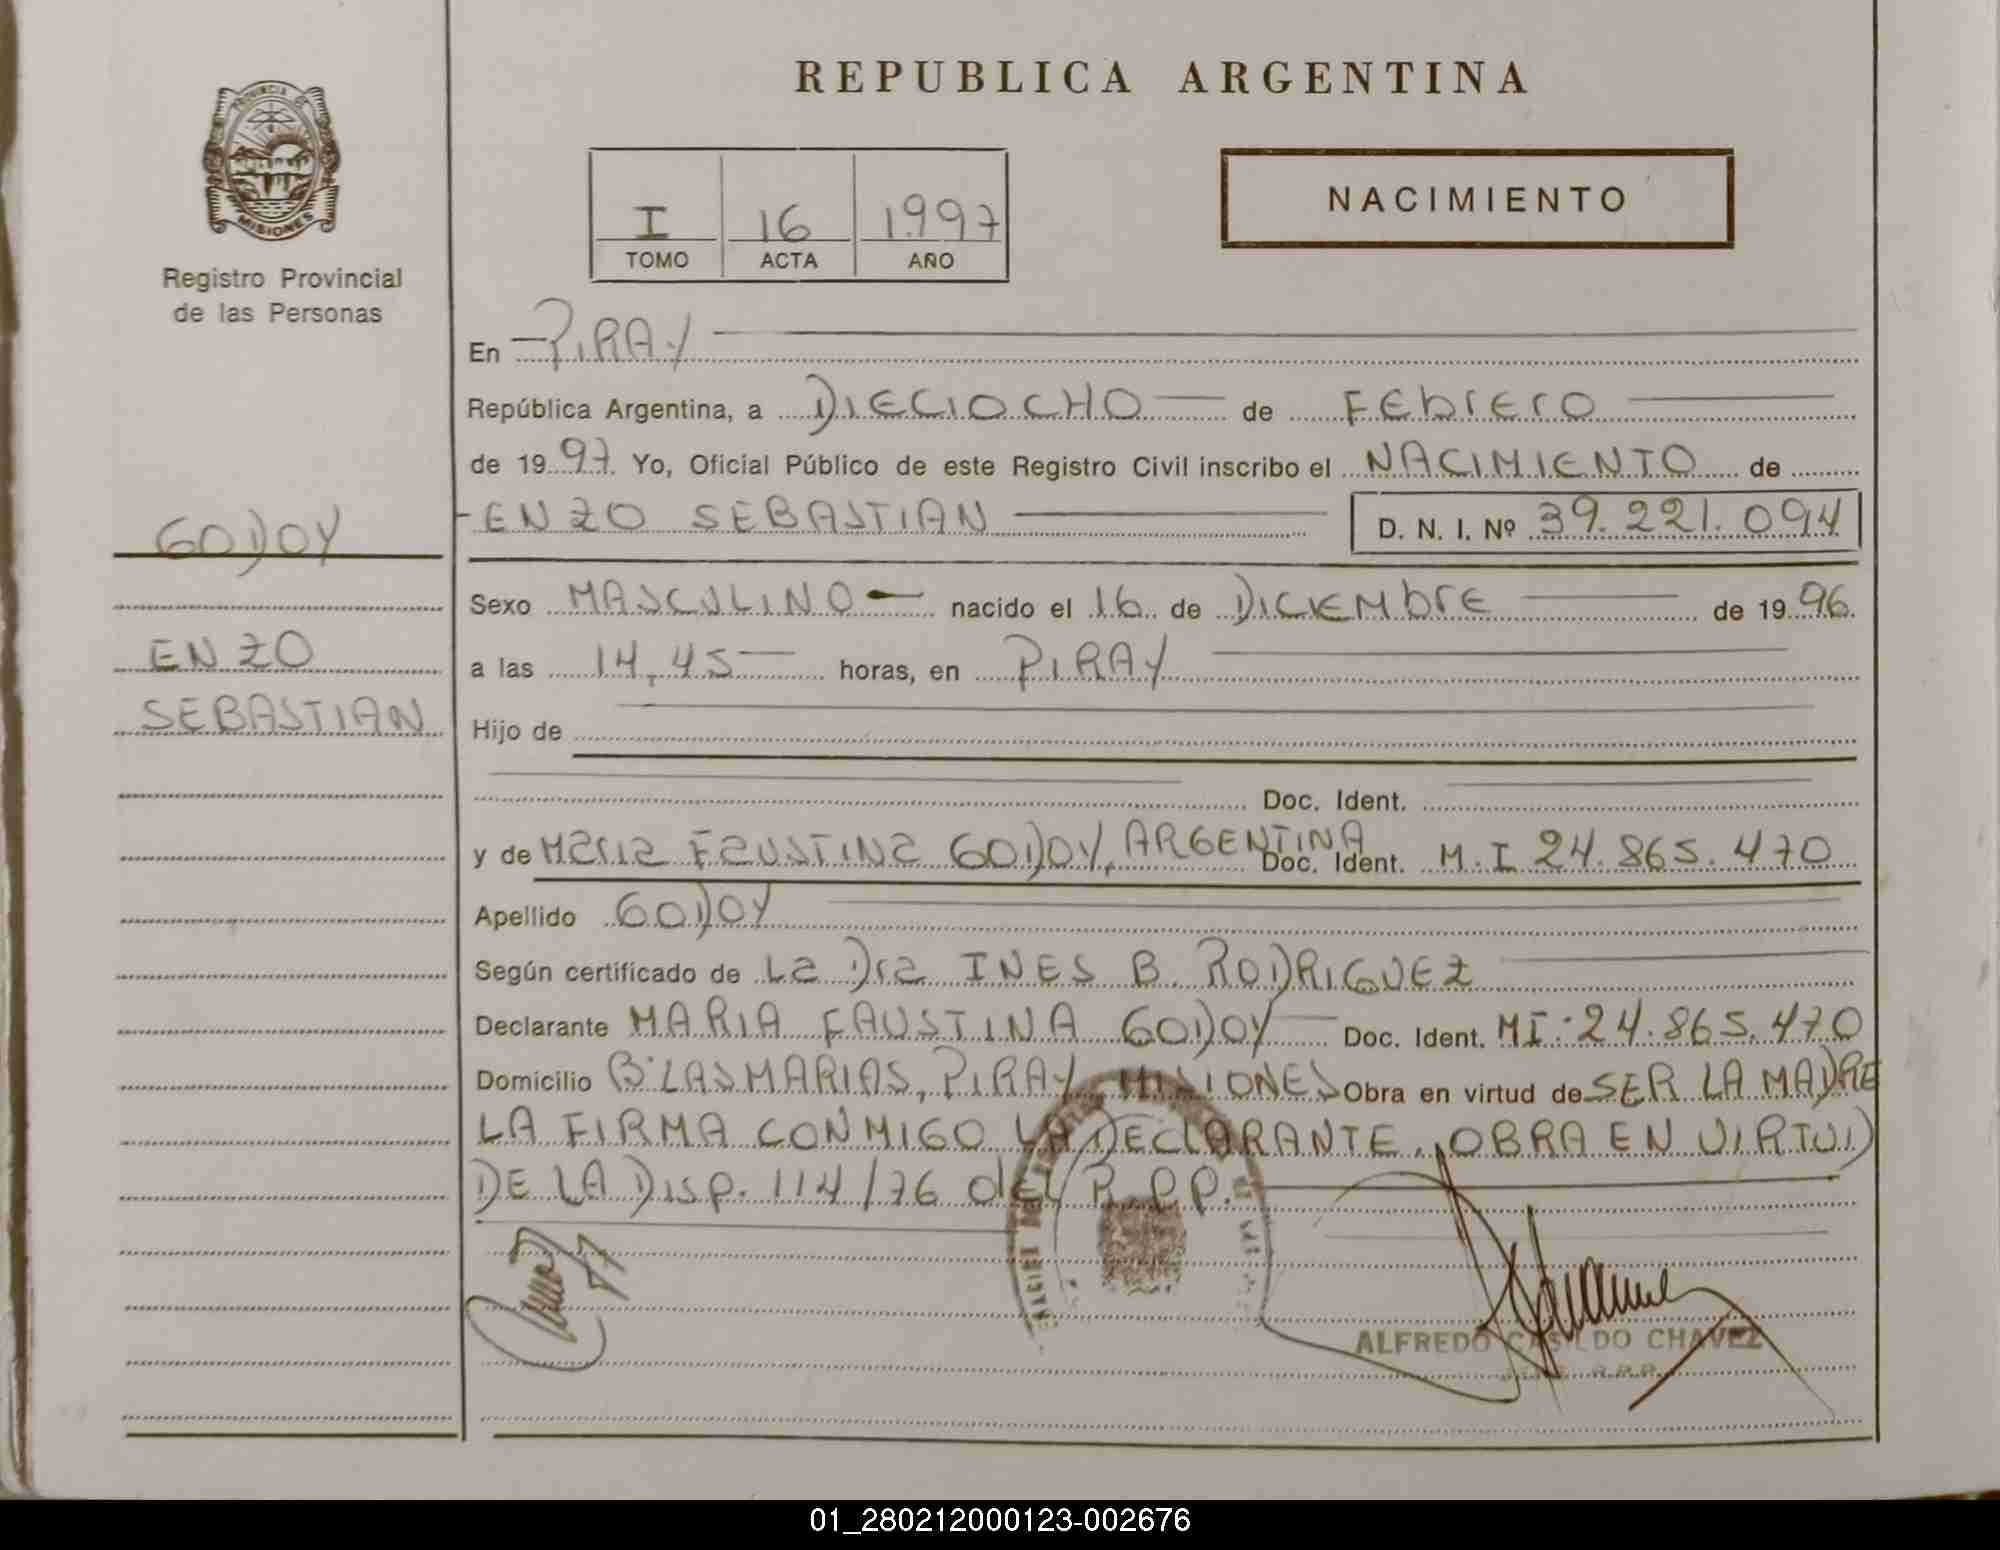 PROVINCIA DE
MISIONES
Registro Provincial
de las Personas
GODOY
ENZO
SEBASTIAN
REPUBLICA ARGENTINA
I 16 1997
TOMO ACTA AÑO
NACIMIENTO
En PIRAY
República Argentina, a DIECIOCHO de FEbrERO
de 1997. Yo, Oficial Público de este Registro Civil inscribo el NACIMIENTO de
ENZO SEBASTIAN D. N. I. Nº 39.221.094
Sexo MASCULINO nacido el 16 de DICIEMbrE de 1996.
a las 14,45 horas, en PIRAY
Hijo de
Doc. Ident.
y de Maria FaUSTINa GODOY, ARGENTINA Doc. Ident. M.I 24.865.470
Apellido GODOY
Según certificado de La Dra INES B. RODRIGUEZ
Declarante MARIA FAUSTINA GODOY Doc. Ident. MI: 24.865.470
Domicilio Bº LAS MARIAS, PIRAY MISIONES Obra en virtud de SER LA MADRE
LA FIRMA CONMIGO LA DEClARANTE, OBRA EN VIRTUD
DE LA DISP. 114/76 dEL R.P.P.
ALFREDO CASILDO CHAVEZ
R.P.P.
01_280212000123-002676